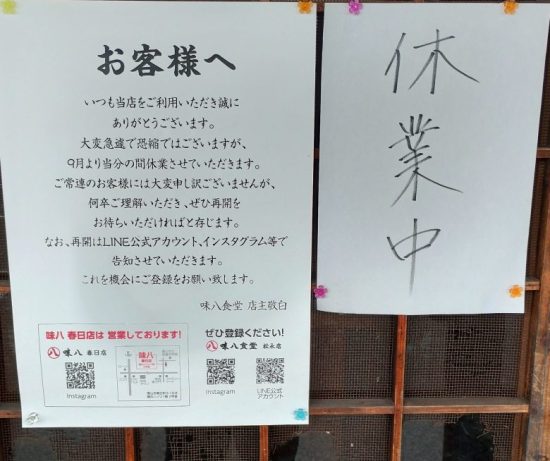 お客様へ
いつも当店をご利用いただき誠に
ありがとうございます。
大変急遽で恐縮ではございますが、
9月より当分の間休業させていただきます。
ご常連のお客様には大変申し訳ございませんが、
何卒ご理解いただき、ぜひ再開を
お待ちいただければと存じます。
なお、再開はLINE公式アカウント、インスタグラム等で
告知させていただきます。
これを機会にご登録をお願い致します。
味八食堂 店主敬白
味八 春日店は 営業しております!
八 味八 春日店
Instagram
味八
春日店
ぜひ登録ください!
八 味八食堂 松永店
Instagram
LINE公式
アカウント
休業中